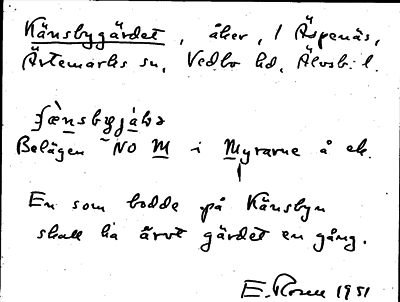 Känsbygärdet, åker, i Äspenäs,
Ärtemarks sn, Vedbo hd, Älvsb. l.
Belägen NO M i Myrarne å ek.
En som bodde på Känsbyn
skall ha ärvt gärdet en gång.
E. Rosen 1951